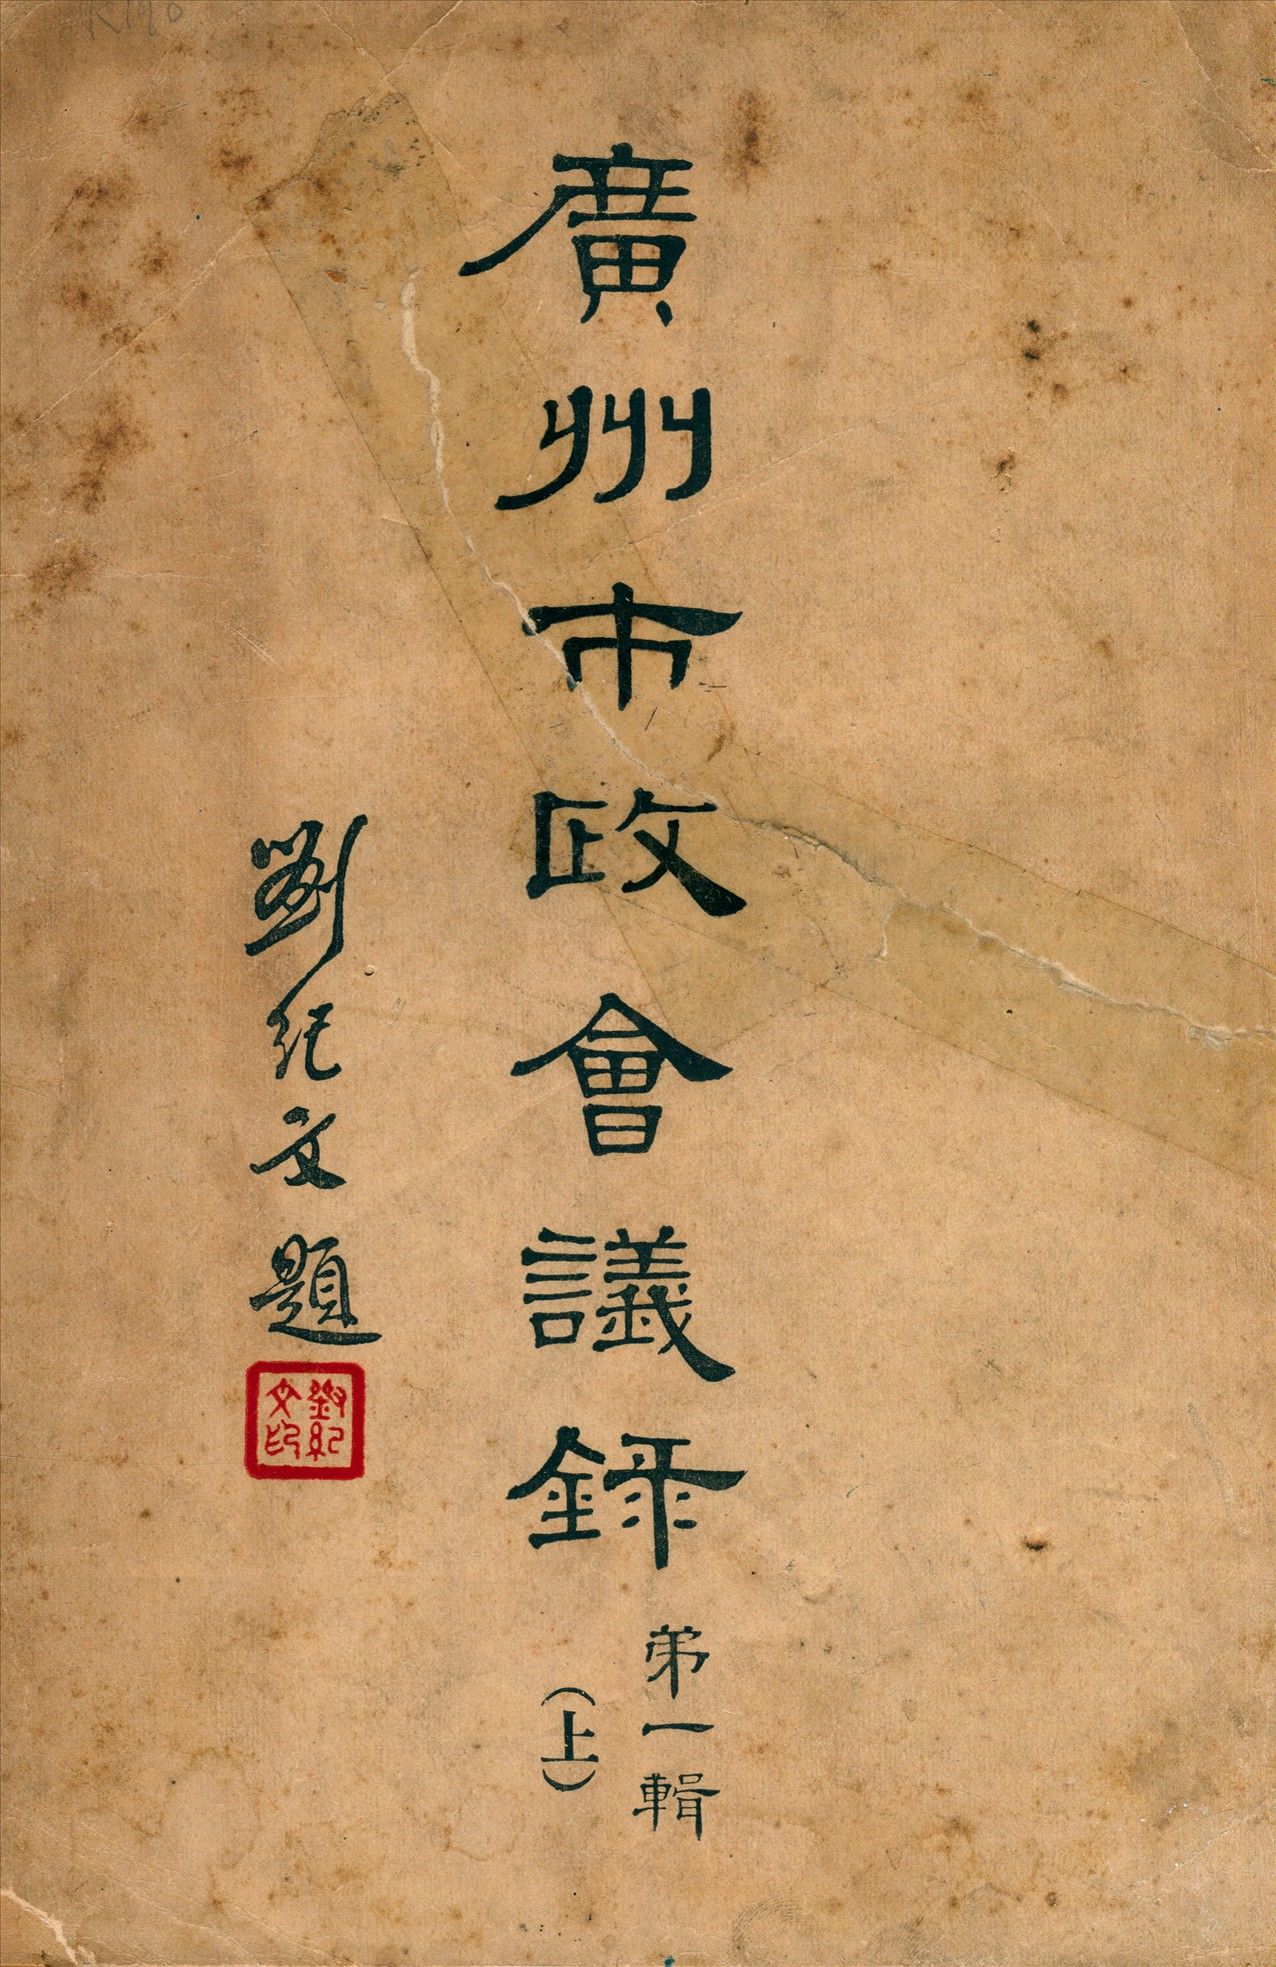 廣州市政會議錄
弟一輯
（上）
劉紀文題
劉紀文印